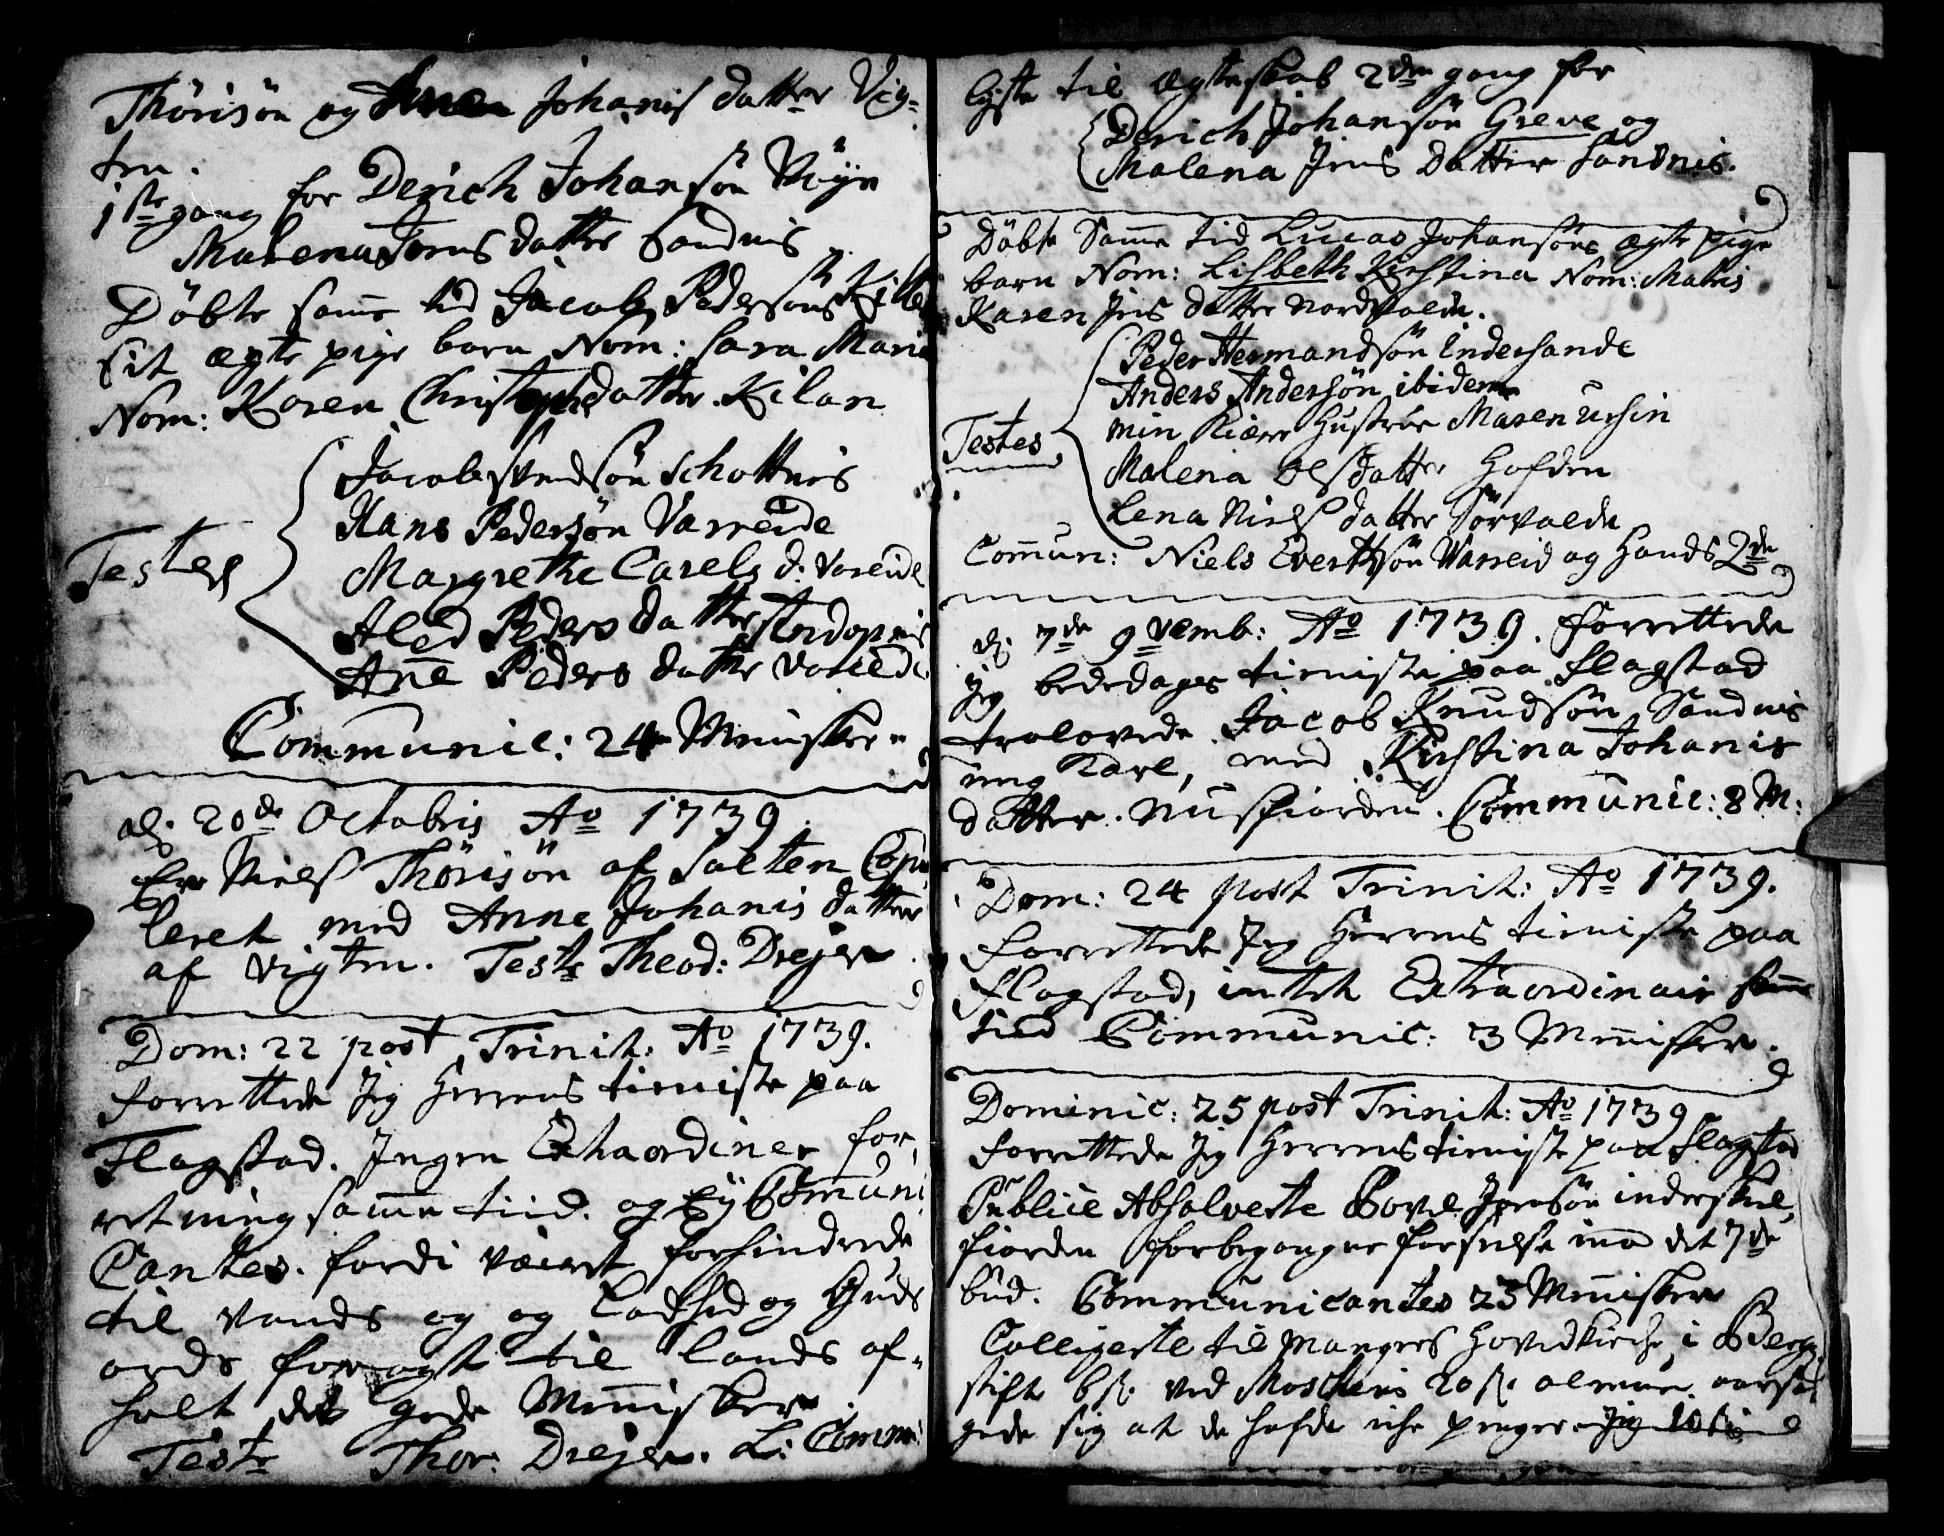 Thörisön og Anne Johanis datter Vig-
ten.
1ste gang for Derich Johansön
Malena Jens datter Sandnis
Döbte samme tid Jacob Pedersöns Kila
sit ægte pige barn Nom: Sara Maria
Nom: Karen Christophe datter. Kilan
Testes
Jacob Svendsön Schottnis
Hans Pedersön Varreide
Margrethe Carels d: Vareide
Aled Peders datter
Anne Peders datter Vareide
Communic: 24 Mennisker
d: 20de Octobris Ao 1739.
Er Niels Thörisön af Salten Copu
leret med Anne Johanis datter
af Vigten. Teste Theod: Drejer.
Dom: 22 post Trinit: Ao 1739.
forrettede Jeg Herrens tieniste paa
Flagstad. Ingen Extraordiner for
retning samme tiid. og Ey Communi
Cantes. fordi væiret forhindrede
til vands og og Ladhed og Guds
ords foragt til lands af-
holt de gode Mennisker
Teste Thor: Drejer. L: Comm:
lyste til ægteskab 2den gang for
Derich Johansön Greve og
Malena Jens Datter Sandnis.
Döbte Samme tid Lucas Johansöns ægte pige
barn Nom: Lisbeth Kirstina Nom: Matris
Karen Jens datter Nordvalde.
Testes
Peder Hermandsön Indersande
Anders Andersön ibidem
min Kiære Hustrue Maren Ursin
Malena Olsdatter Hofden
Lena Niels datter Sörvalde
Commun: Niels Evertsön Varreid og Hands 2de
d: 7de 9vemb: Ao 1739. forrettede
Jeg bededages tieniste paa Flagstad
trolovede Jacob Knudsön Sandnis
ung Karl, med Kirstina Johanis
datter. Nusfiorden. Communic: 8 M:
Dom: 24 post Trinit: Ao 1739.
forrettede Jeg Herrens tieniste paa
Flagstad, intet Extraordinair samme
tiid Communic: 3 Mennisker.
Dominic: 25 post Trinit: Ao 1739
forrettede Jeg Herrens tieniste paa Flagstad
Publice Absolverte Povel Jensön inderskiel,
fiorden for begangne forseelse imod det 7de
bud. Communicantes 23 Mennisker
Colligerte til Mangers Hovedkirche, i Berge
stift 6 s: ved Moschenis 20 s: almuen undskyl
gede sig at de hafde iche penge